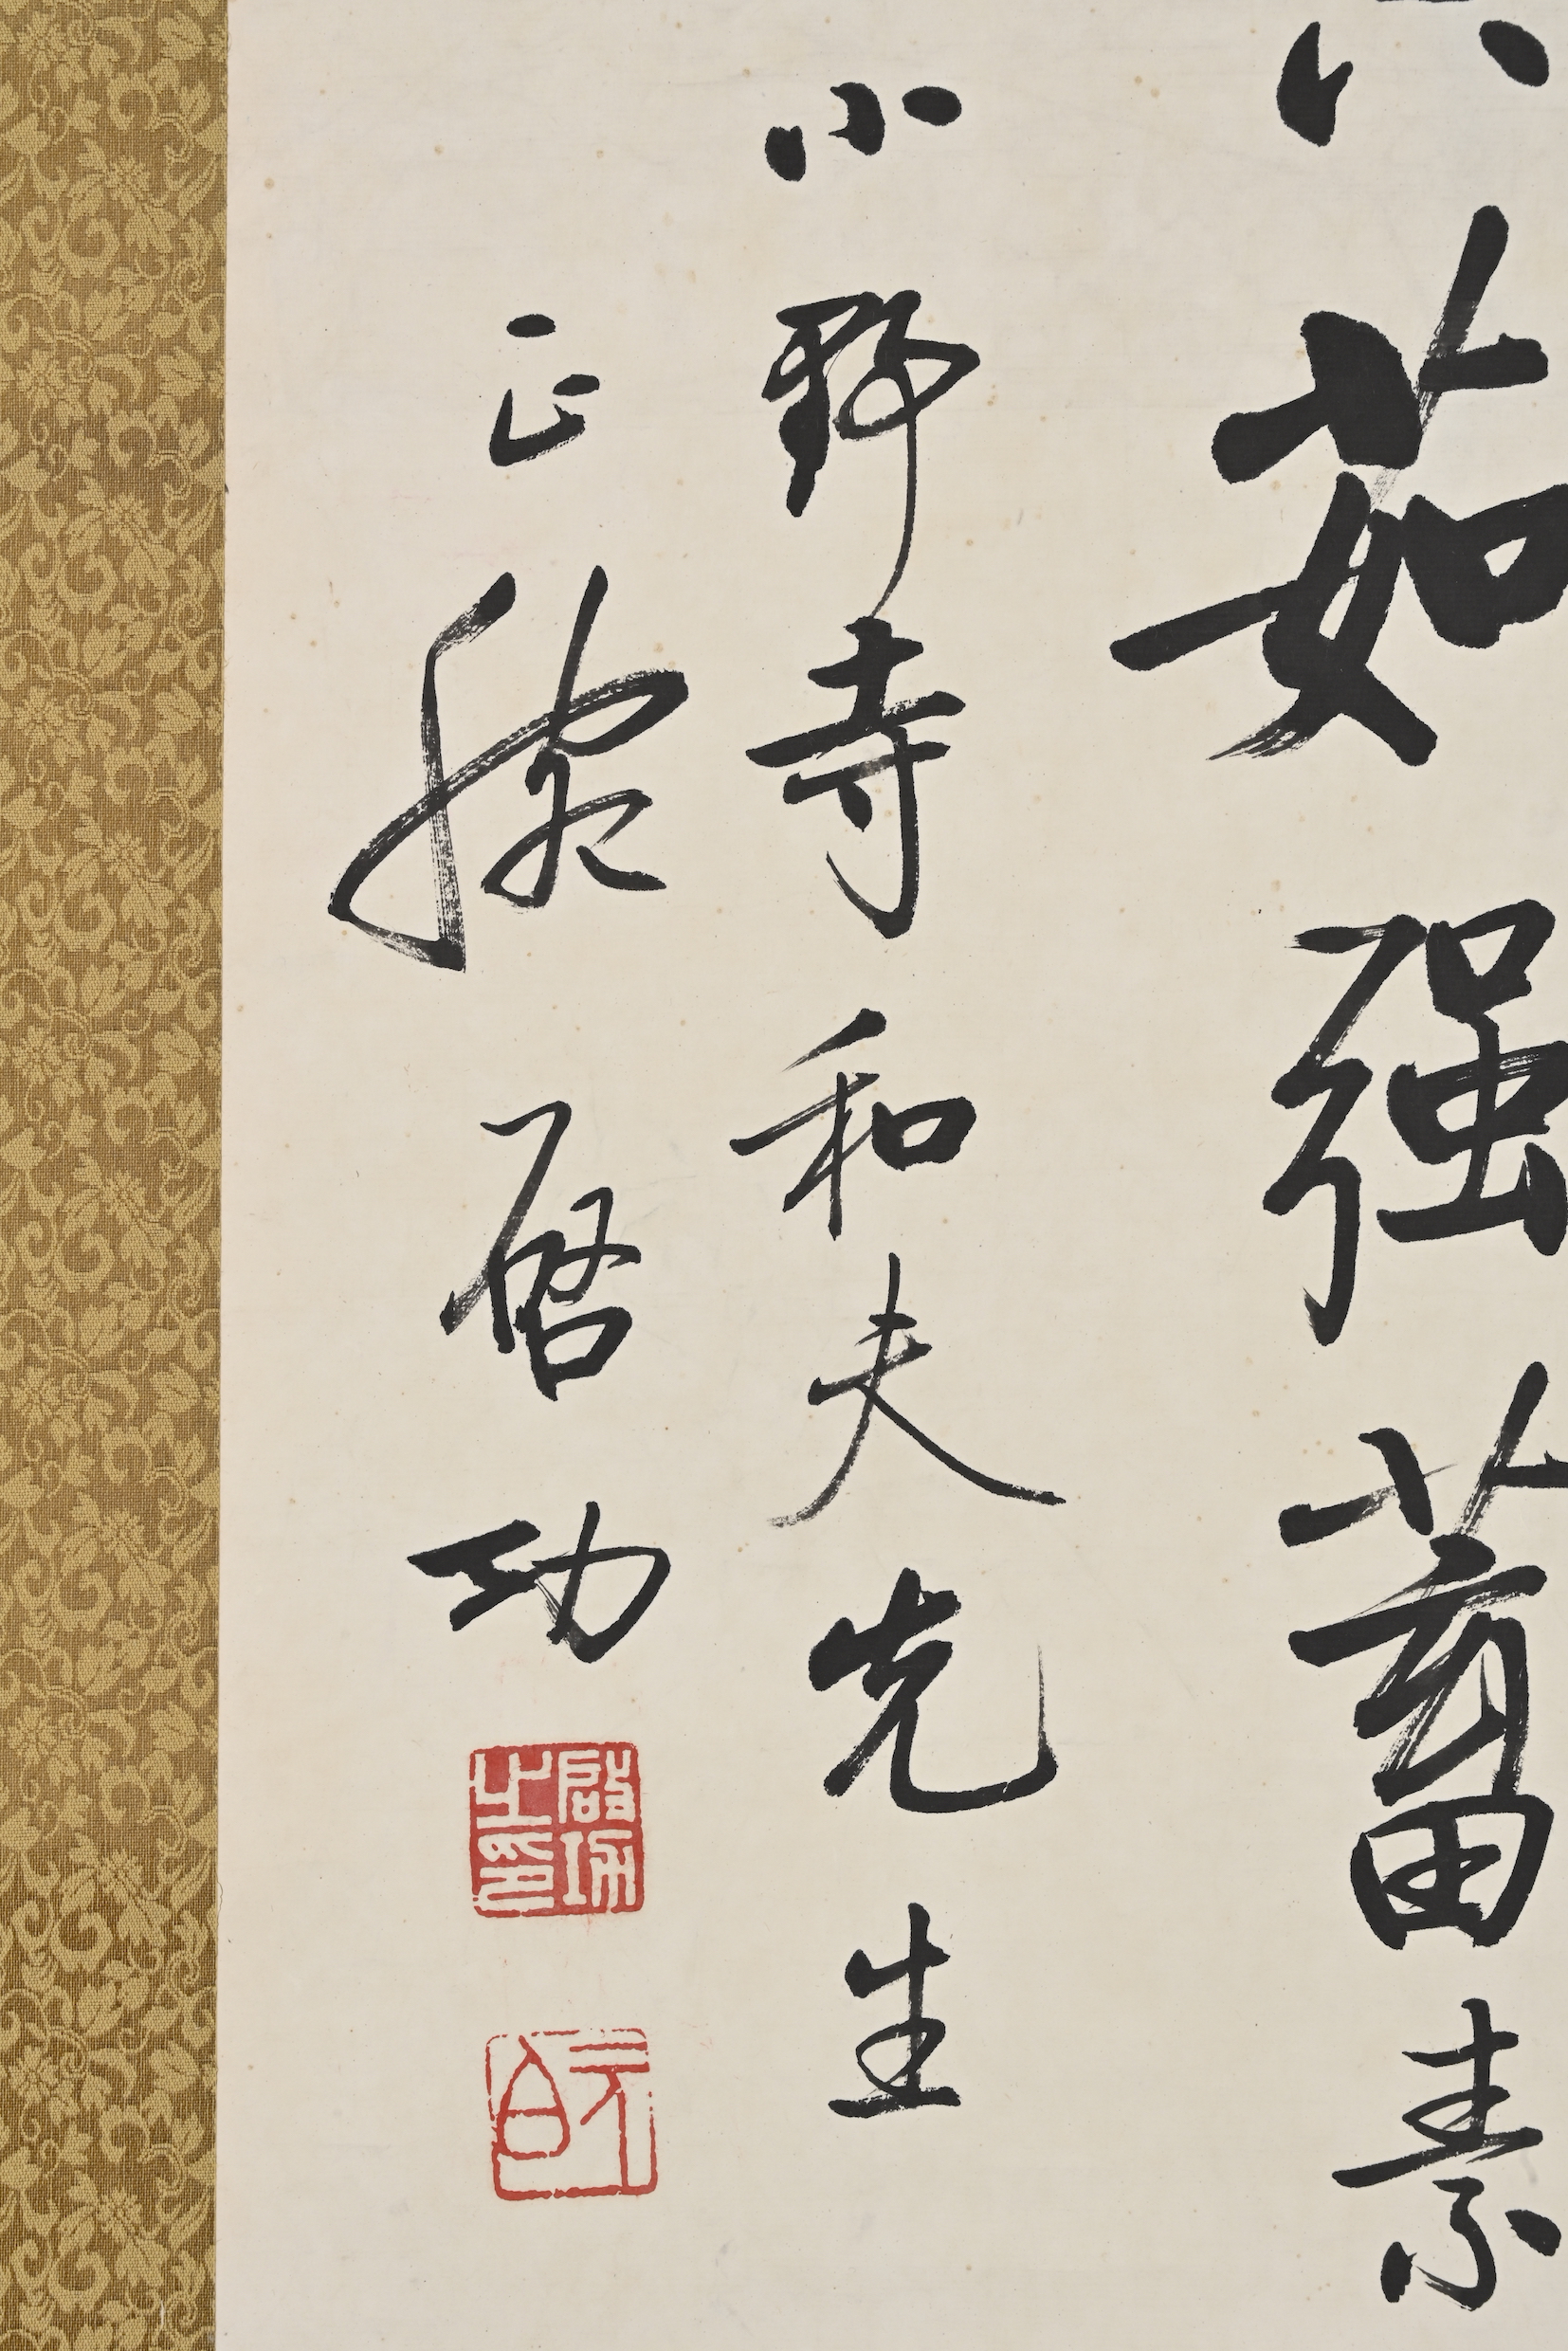 茹强蓄素
小野寺和夫先生
正腕 啓功
啟功之印
元白